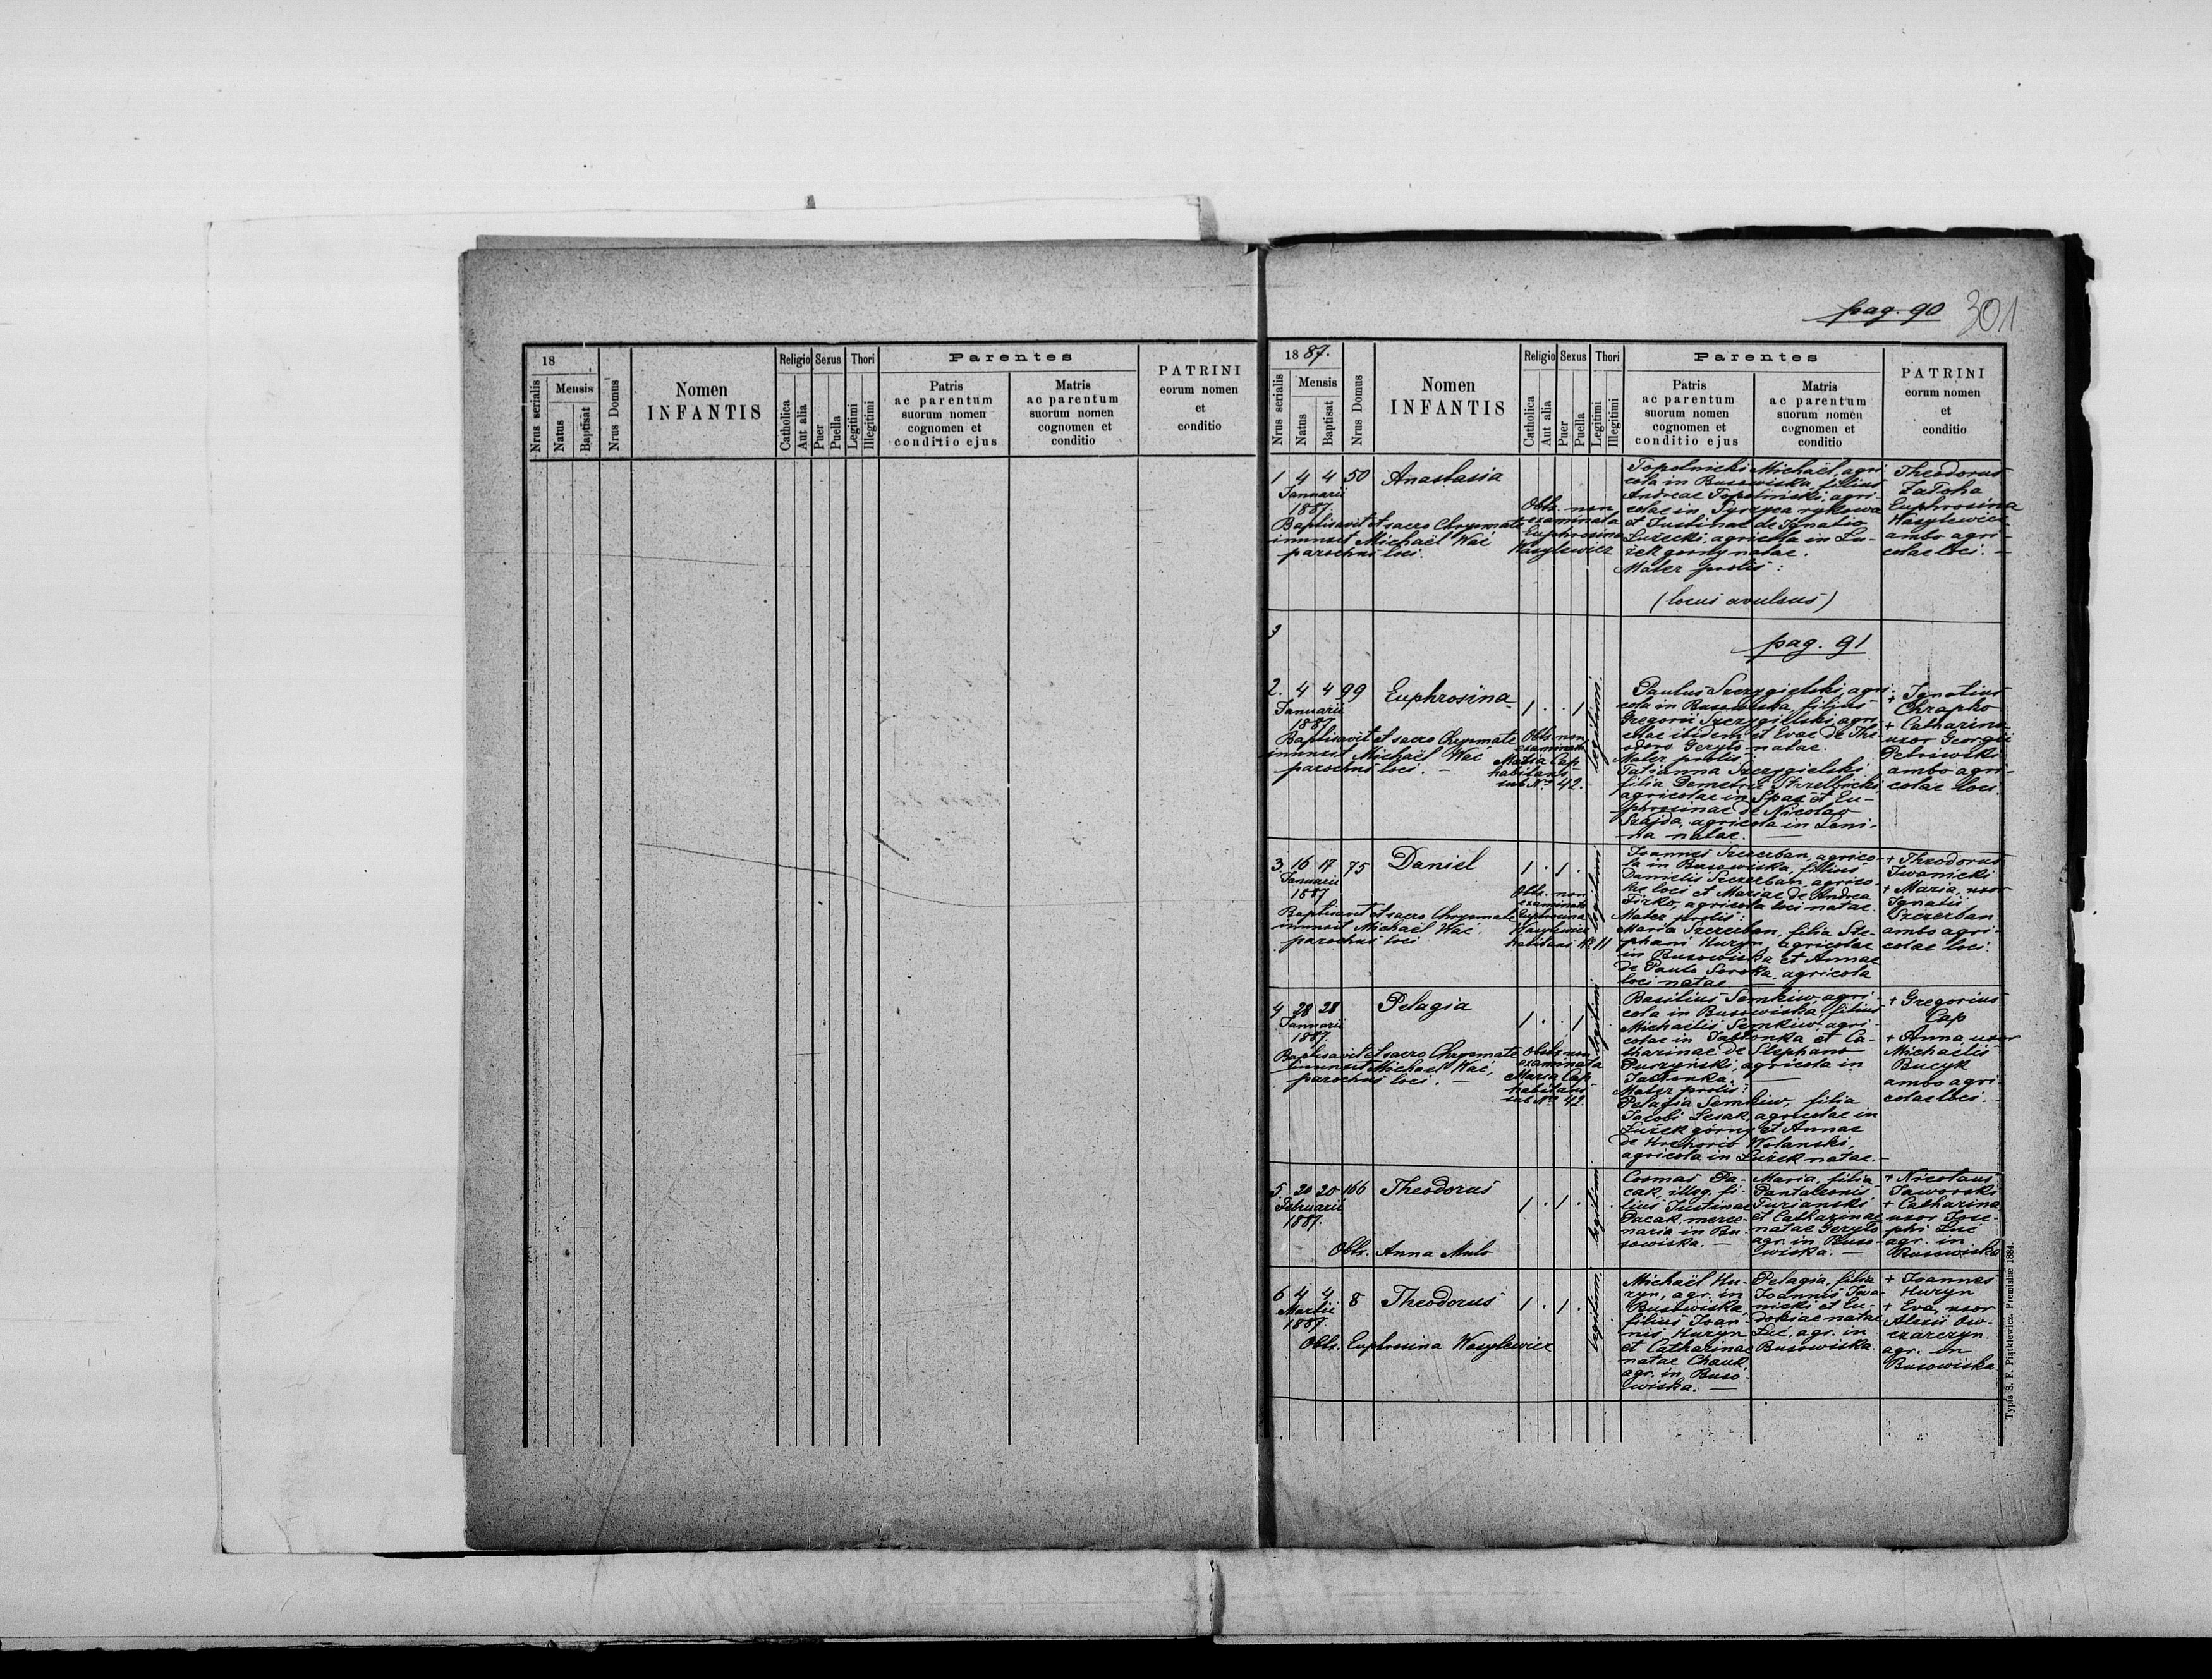 18
Nrus serialis
Mensis
Natus
Baptisat
Nrus Domus
Nomen
INFANTIS
Religio
Catholica
Aut alia
Sexus
Puer
Puella
Thori
Legitimi
Illegitimi
Parentes
Patris
ac parentum
suorum nomen
cognomen et
conditio ejus
Matris
ac parentum
suorum nomen
cognomen et
conditio
PATRINI
eorum nomen
et
conditio
pag. 90
301
1887.
Nrus serialis
Mensis
Natus
Baptisat
Nrus Domus
Nomen
INFANTIS
Religio
Catholica
Aut alia
Sexus
Puer
Puella
Thori
Legitimi
Illegitimi
Parentes
Patris
ac parentum
suorum nomen
cognomen et
conditio ejus
Matris
ac parentum
suorum nomen
cognomen et
conditio
PATRINI
eorum nomen
et
conditio
1 4 4 50 Anastasia
Januarii
1887
Baptisavit et sacro Chrysmate
inunxit Michaël Wać
parochus loci.
Obs. non
examinata
Euphrosina
Wasylewicz
Topolnicki Michaël, agri-
cola in Busowiska, filius
Andreae Topolnicki, agri-
colae in Tyrzyca rykowa
et Justinae de Ignatio
Łużecki, agricola in Łu-
żek gorny natae.
Mater prolis:
(locus avulsus)
Theodorus
Zatoha
Euphrosina
Wasylewicz
ambo agri-
colae loci. —
3
pag. 91
2. 4 4 99 Euphrosina 1 . . 1 legitimi.
Januarii
1887
Baptisavit et sacro Chrysmate
inunxit Michaël Wać
parochus loci. —
Obs. non
examinata
Maria Cap
habitans
sub No 42.
Paulus Szczygielski, agri-
cola in Busowiska, filius
Gregorii Szczygielski, agri-
colae ibidem et Evae de The-
odoro Geryło natae.
Mater prolis:
Tatianna Szczygielski
filia Demetrii Strzelbicki
agricolae in Spas et Eu-
phrosinae de Nicolao
Szajda, agricola in Leni-
na natae. —
+ Ignatius
Chrapko
+ Catharina
uxor Georgii
Petriwski
ambo agri-
colae loci.
3. 16 17 75 Daniel 1 . 1 . legitimi
Januarii
1887
Baptisavit et sacro Chrysmate
inunxit Michaël Wać
parochus loci
Obs. non
examinata
Euphrosina
Wasylewicz
habitans No 11
Joannes Szczerban, agrico-
la in Busowiska, filius
Danielis Szczerban, agrico-
lae loci et Mariae de Andrea
Firko, agricola loci natae.
Mater prolis:
Maria Szczerban, filia Ste-
phani Huryn, agricolae
in Busowiska et Annae
de Paulo Soroka, agricola
loci natae —
+ Theodorus
Iwanicki
+ Maria, uxor
Ignatii
Szczerban
ambo agri-
colae loci.
4 28 28 Pelagia 1 . . 1 legitimi
Januarii
1887.
Baptisavit et sacro Chrysmate
inunxit Michaël Wać,
parochus loci. —
Obs. non
examinata
Maria Cap
habitans
sub No 42.
Basilius Semkiw, agri-
cola in Busowiska, filius
Michaelis Semkiw, agri-
colae in Jabłonka et Ca-
tharinae de Stephano
Puszyński, agricola in
Jabłonka. —
Mater prolis:
Pelagia Semkiw, filia
Jacobi Lesak, agricolae in
Łużek górny et Annae
de Hrehorio Wolanski,
agricola in Łużek natae. —
+ Gregorius
Cap
+ Anna uxor
Michaelis
Bucyk
ambo agri-
colae loci.
5. 20 20 166 Theodorus 1 . 1 . legitimi
Februarii
1887.
Obs. Anna Mulo
Cosmas Pa-
cak, illeg. fi-
lius Justinae
Pacak, merce-
naria in Bu-
sowiska. —
Maria, filia
Pantaleonis
Turianski
et Catharinae
natae Geryło
agr. in Buso-
wiska. —
+ Nicolaus
Jaworski
+ Catharina
uxor Jose-
phi Łuć
agr. in
Busowiska
6 4 4 8 Theodorus 1 . 1 . legitimi
Martii
1887.
Obs. Euphrosina Wasylewicz
Michaël Hu-
ryn, agr. in
Busowiska,
filius Joan-
nis Huryn
et Catharinae
natae Chauk
agr. in Buso-
wiska. —
Pelagia, filia
Joannis Iwa-
nicki et Eu-
dokiae natae
Łuć, agr. in
Busowiska.
+ Joannes
Huryn
+ Eva, uxor
Alexii Ow-
czarczyn.
agr. in
Busowiska.
Typis S. F. Piątkiewicz. Premisliæ 1884.